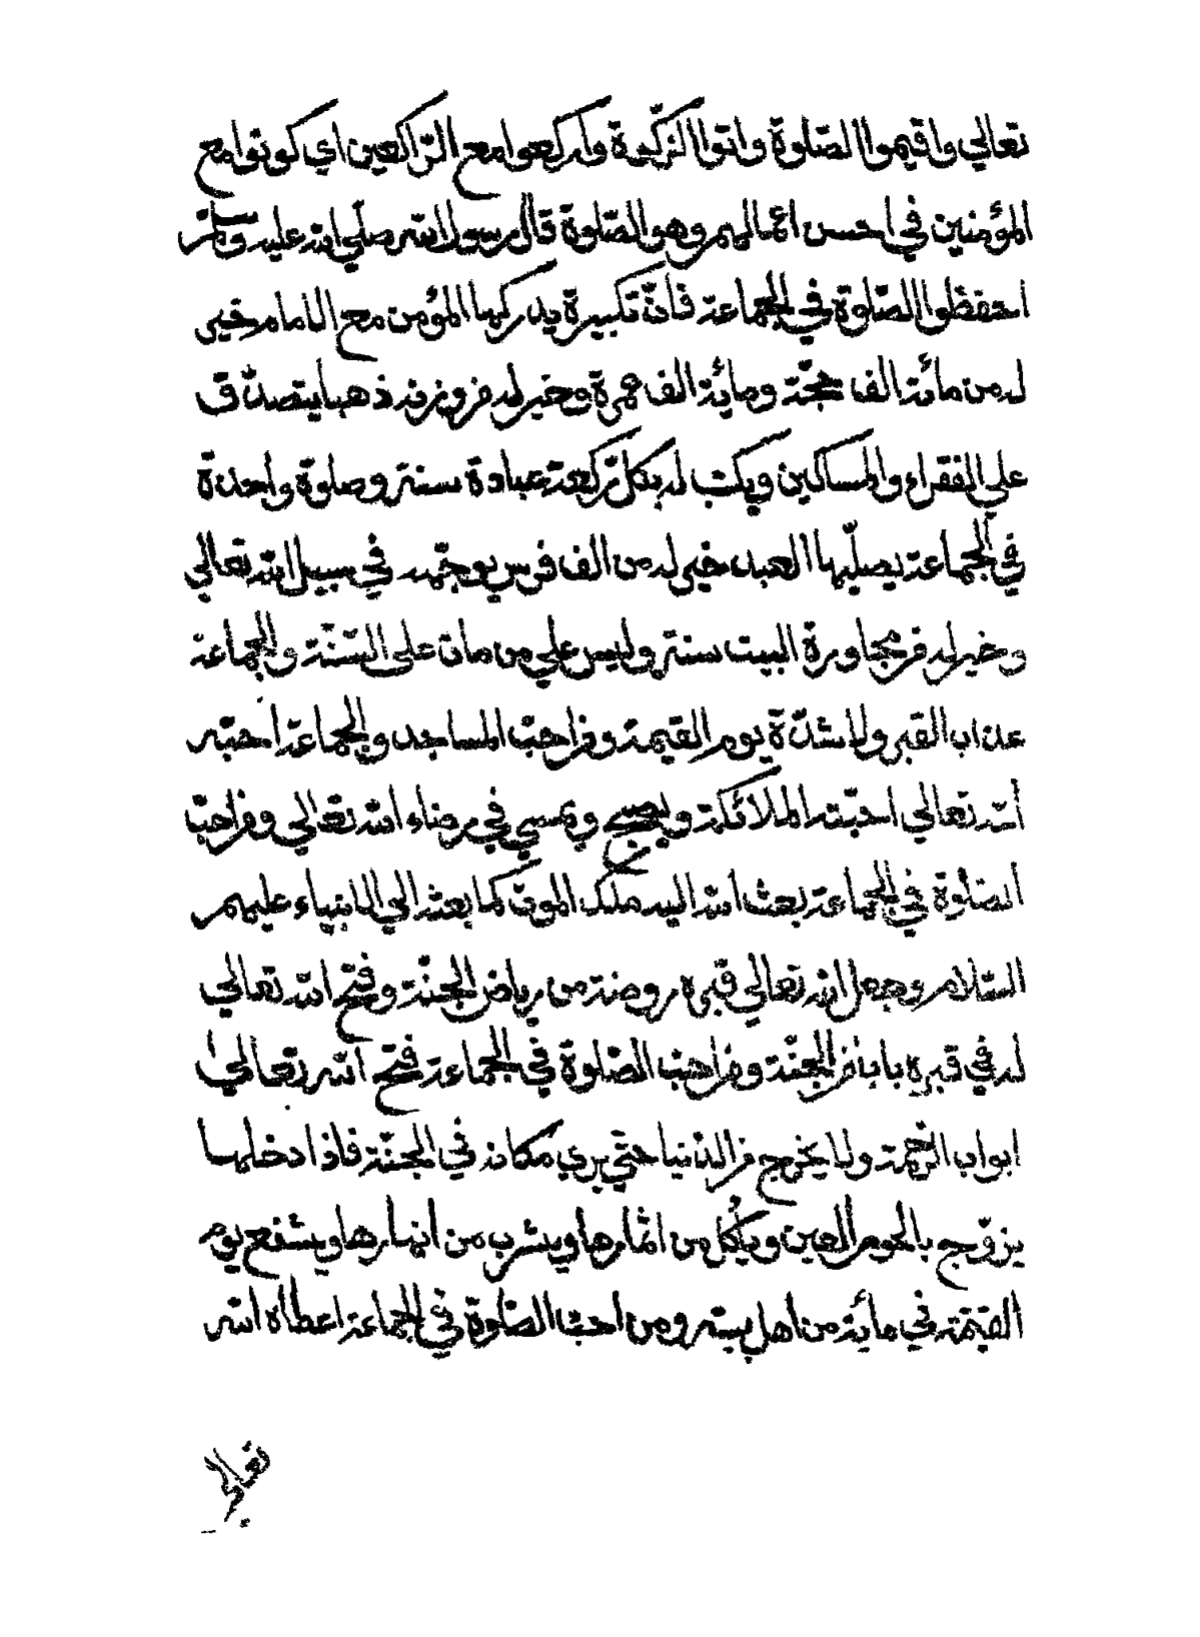 تعالي واقيموا الصّلوة واتوا الزّكوة واركعوا مع الرّاكعين اي كونوا مع
المؤمنين في احسن اعمالهم وهو الصّلوة قال رسول الله صلّي الله عليه وسلّم
احفظوا الصّلوة في الجماعة فانّ تكبيرة يدركها المؤمن مع الامام خير
له من مائة الف حجّة ومائة الف عمرة وخير له من وزنه ذهبا يتصدّق
علي الفقراء والمساكين ويكتب له بكلّ ركعة عبادة سنة وصلوة واحدة
في الجماعة يصلّيها العبد خير له من الف فرس يوجّهه في سبيل الله تعالي
وخير له من مجاورة البيت سنة وليس علي من مات على السّنّة والجماعة
عذاب القبر ولا شدّة يوم القيمة ومن احبّ المساجد والجماعة احبّه
الله تعالي احبّته الملائكة ويصبح ويمسي في رضاء الله تعالي ومن احبّ
الصّلوة في الجماعة بعث الله اليه ملك الموت كما بعثه الي الانبياء عليهم
السّلام وجعل الله تعالي قبره روضة من رياض الجنّة وفتح الله تعالي
له في قبره بابا من الجنّة ومن احبّ الصّلوة في الجماعة فتح الله تعالي
ابواب الرّحمة ولا يخرج من الدّنيا حتّي يري مكانه في الجنّة فاذا دخلها
يزوّج بالحور العين ويأكل من اثمارها ويشرب من انهارها ويشفع يوم
القيمة في مائة من اهل بيته ومن احبّ الصّلوة في الجماعة اعطاه الله
تعالي